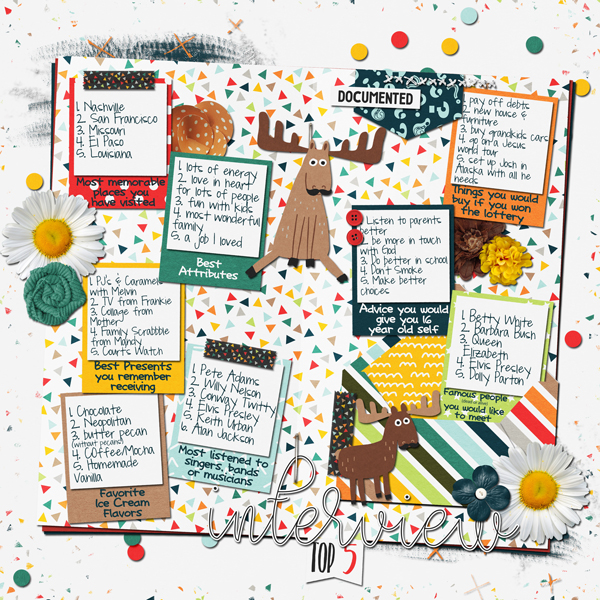 1. Nashville
2. San Francisco
3. Missouri
4. El Paso
5. Louisiana
Most memorable
places you
have visited
1. lots of energy
2. love in heart
for lots of people
3. fun with kids
4. most wonderful
family
5. a job I loved
Best
Attributes
DOCUMENTED
1. pay off debts
2. new house &
furniture
3. buy grandkids cars
4. go on a Jesus
world tour
5. set up Josh in
Alaska with all he
needs
Things you would
buy if you won
the lottery
1. Listen to parents
better
2. be more in touch
with God
3. Do better in school
4. Don't Smoke
5. Make better
choices
Advice you would
give you 16
year old self
1. PJ's & Caramels
with Melvin
2. TV from Frankie
3. Collage from
Mother
4. Family Scrabble
from Mandy
5. Courts Watch
Best Presents
you remember
receiving
1. Betty White
2. Barbara Bush
3. Queen
Elizabeth
4. Elvis Presley
5. Dolly Parton
Famous people
(dead or alive)
you would like
to meet
1. Pete Adams
2. Willy Nelson
3. Conway Twitty
4. Elvis Presley
5. Keith Urban
6. Alan Jackson
Most listened to
singers, bands
or musicians
1. Chocolate
2. Neapolitan
3. butter pecan
(without pecans)
4. Coffee/Mocha
5. Homemade
Vanilla
Favorite
Ice Cream
Flavors
interview
TOP 5